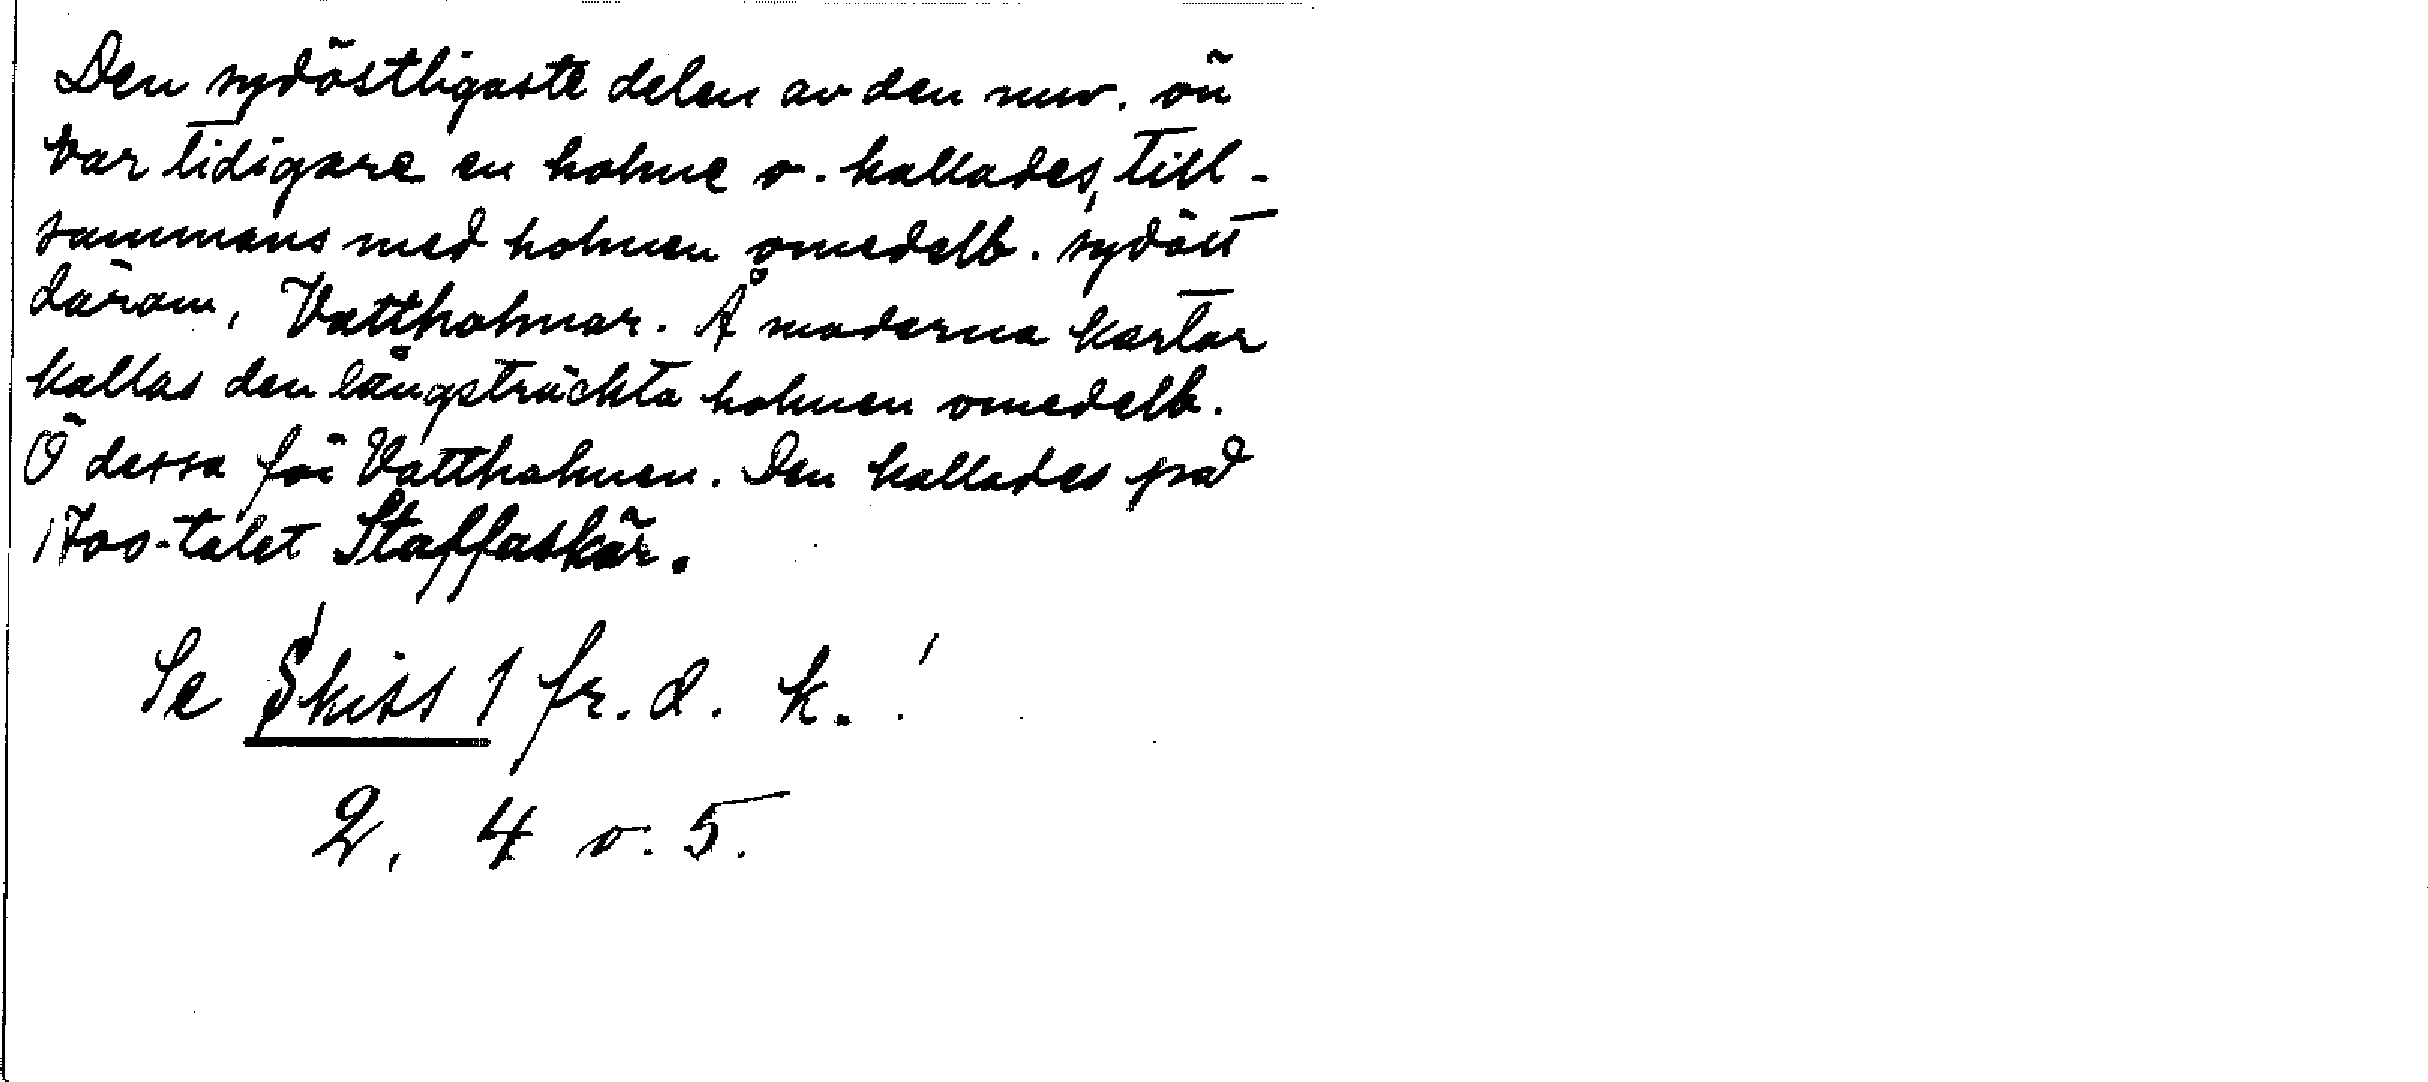 Den sydöstligaste delen av den nuv. ön
var tidigare en holme o. kallades, till-
sammans med holmen omedelb. sydöst
därom, Vattholmar. Å moderna kartor
kallas den långsträckta holmen omedelb.
Ö dessa för Vattholmen. Den kallades på
1700-talet Staffaskär.
Se Skiss 1 fr. d. k.!
2, 4 o. 5.